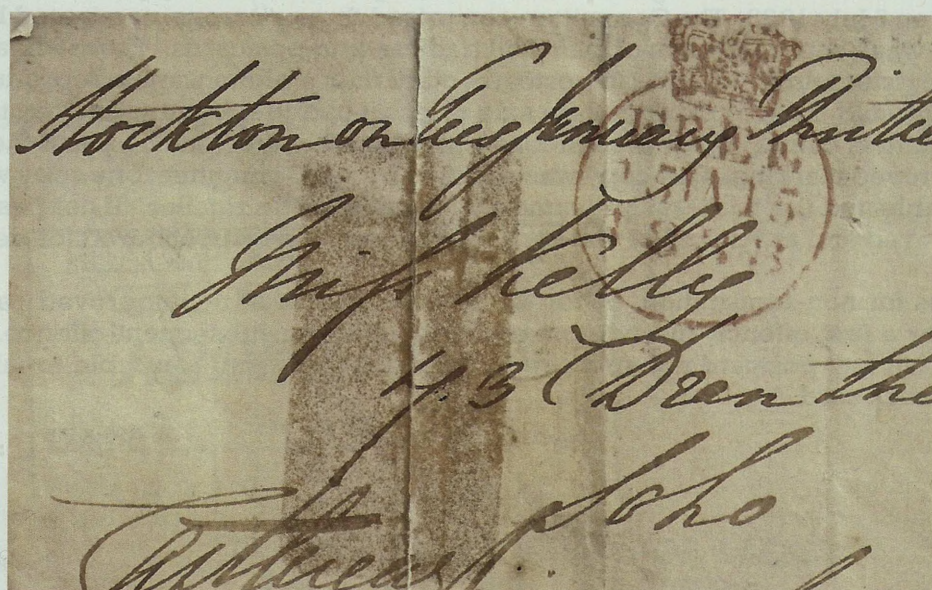 Stockton on Tees January Thirtee
FREE
15 JA 15
Miss Kelly
43 Dean Stre
Soho